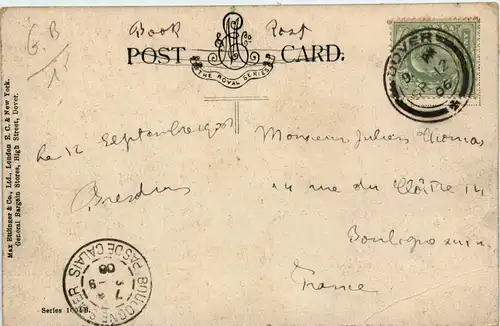 G.B
Book Post
POST CARD.
THE ROYAL SERIES
DOVER
12
06
Max Ettlinger & Co., Ltd., London E.C. & New York.
General Bargain Stores, High Street, Dover.
Le 12 Septembre
Monsieur Julien Thomas
14 rue du Cloître 14
Boulogne sur m
France
BOULOGNE S MER
PAS DE CALAIS
06
Series